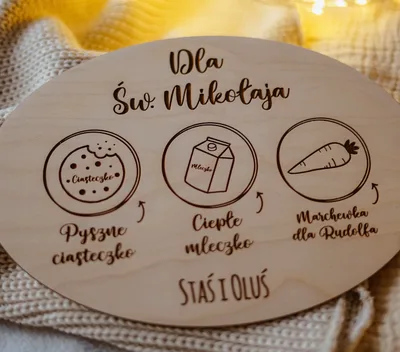 Dla
Św. Mikołaja
Ciasteczko
Mleczko
Pyszne
ciasteczko
Ciepłe
mleczko
Marchewka
dla Rudolfa
Staś i Oluś